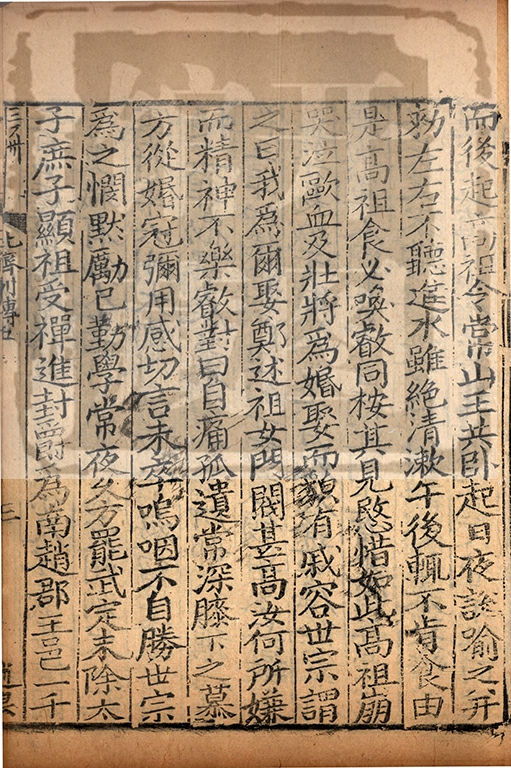 而後起高祖令常山王共卧起日夜說喻之并
勑左右不聽進水雖絶清漱午後輒不肯食由
是髙祖食必喚叡同桉其見愍惜如此髙祖崩
哭泣歐血及壯將為婚娶而貌有戚容世宗謂
之曰我為爾娶鄭述祖女門閥甚髙汝何所嫌
而精神不樂叡對曰自痛孤遺常深膝下之慕
方從婚冠彌用感切言未卒嗚咽不自勝世宗
為之憫黙勵己勤學常夜久方罷武定末除太
子庶子顯祖受禪進封爵為南趙郡王邑一千
三万卅 北齊列傳五 三